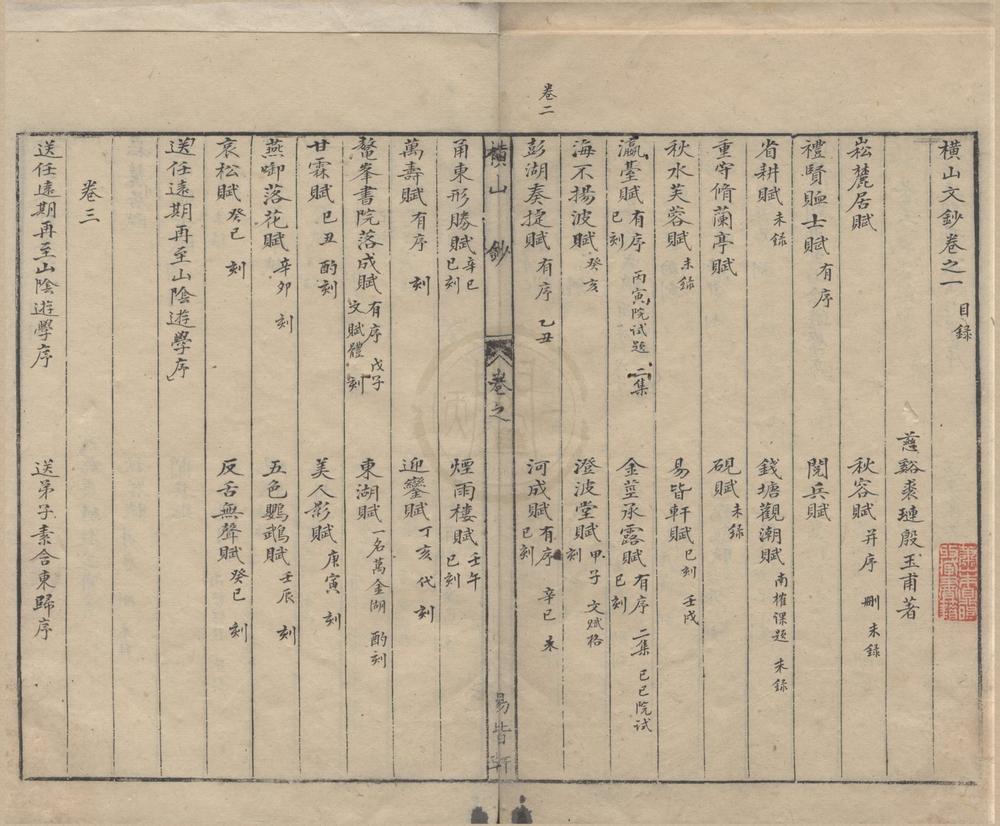 橫山文鈔卷之一 目錄
慈谿裘璉殷玉甫著
崧麓居賦 秋容賦 并序 刪 未錄
禮賢賦士賦 有序 閱兵賦
省耕賦 未錄 錢塘觀潮賦 南榷課題 未錄
重守脩蘭亭賦 硯賦 未錄
秋水芙蓉賦 未錄 易皆軒賦 已刻 壬戌
瀛臺賦 有序 已刻 丙寅院試題 二集 金莖承露賦 有序 已刻 二集 己巳院試
海不揚波賦 癸亥 澄波堂賦 甲子 文賦格 刻
彭湖奏捷賦 有序 乙丑 河成賦 有序 已刻 辛巳 未
卷二
橫山 鈔 卷之 易皆軒
甬東形勝賦 辛巳 已刻 煙雨樓賦 壬午 已刻
萬壽賦 有序 刻 迎鑾賦 丁亥 代 刻
鼇峯書院落成賦 有序 戊子 文賦體 刻 東湖賦 一名萬金湖 酌刻
甘霖賦 己丑 酌刻 美人影賦 庚寅 刻
燕啣落花賦 辛卯 刻 五色鸚鵡賦 壬辰 刻
哀松賦 癸巳 刻 反舌無聲賦 癸巳 刻
送任遠期再至山陰遊學序
卷三
送任遠期再至山陰遊學序 送弟子素合東歸序